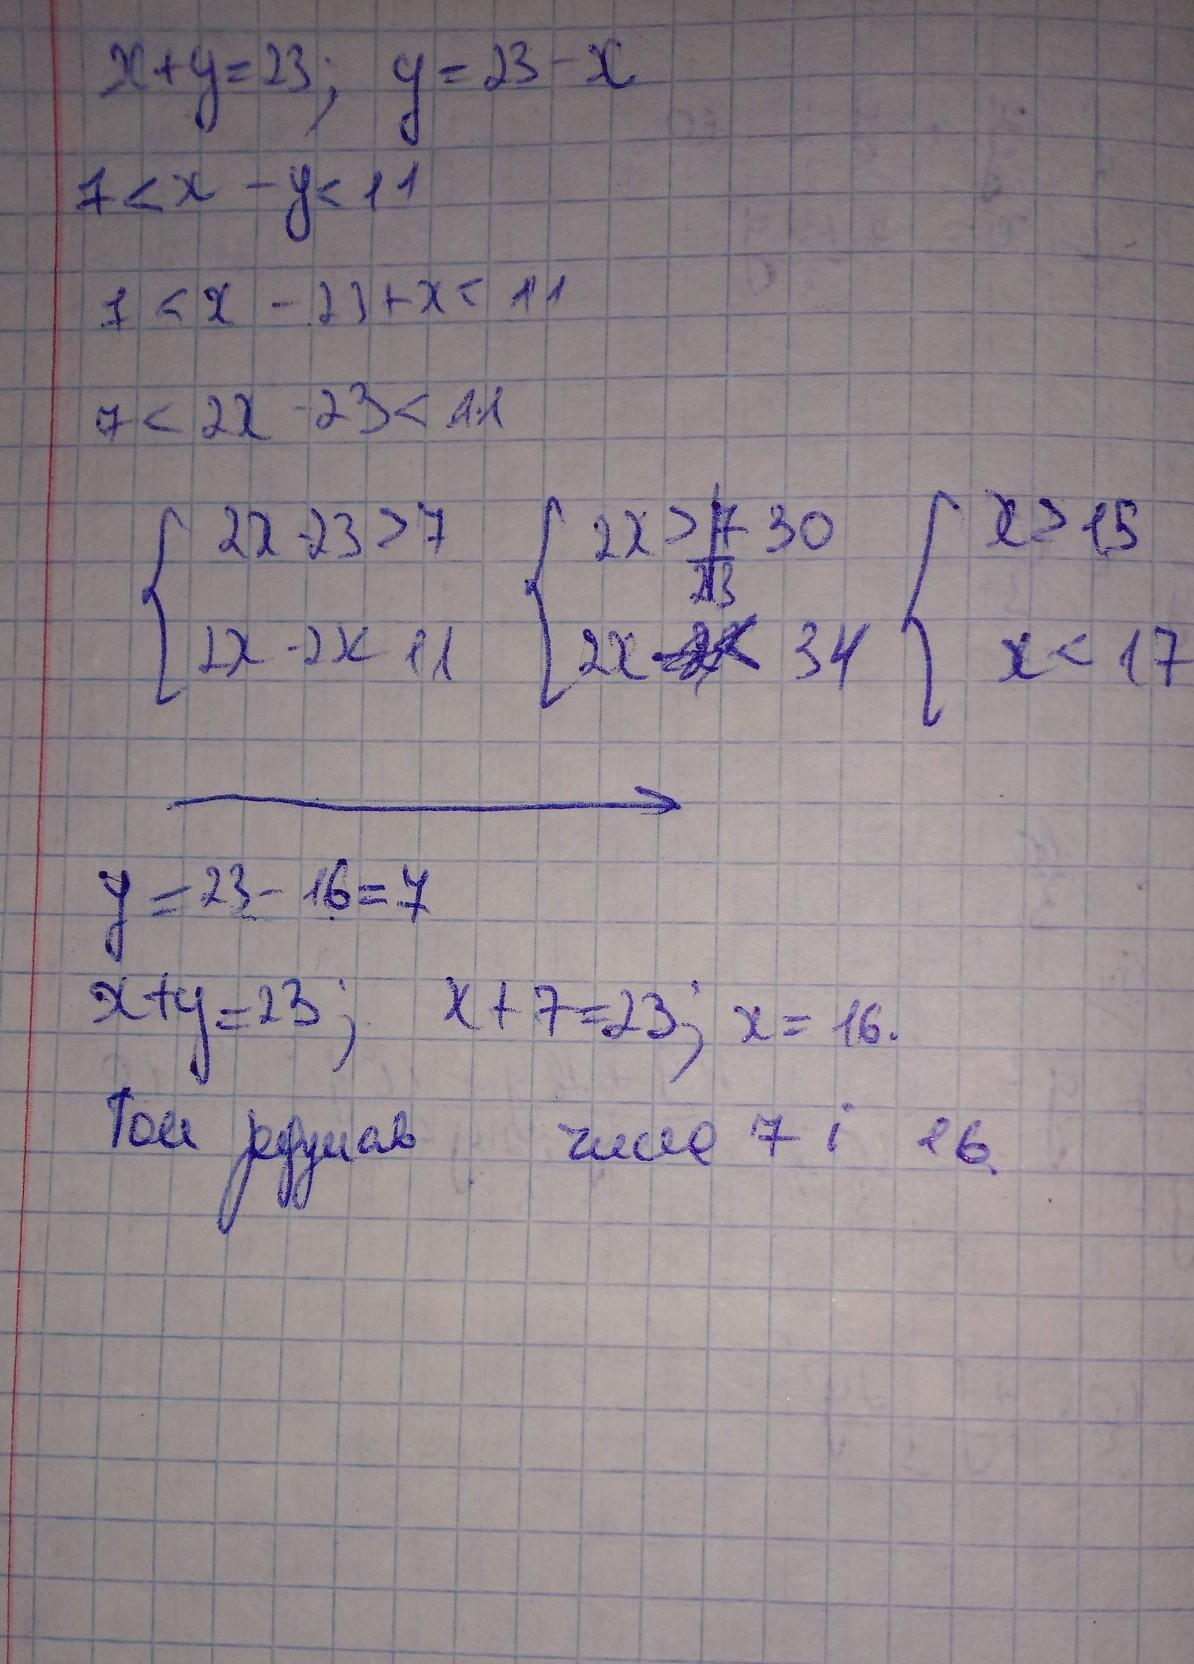 x+y=23; y=23-x
7<x-y<11
7<x-23+x<11
7<2x-23<11
2x-23>7 2x>30 x>15
2x-2x<11 2x 34 x<17
y=23-16=7
x+y=23; x+7=23; x=16.
Том задумав числа 7 і 16.